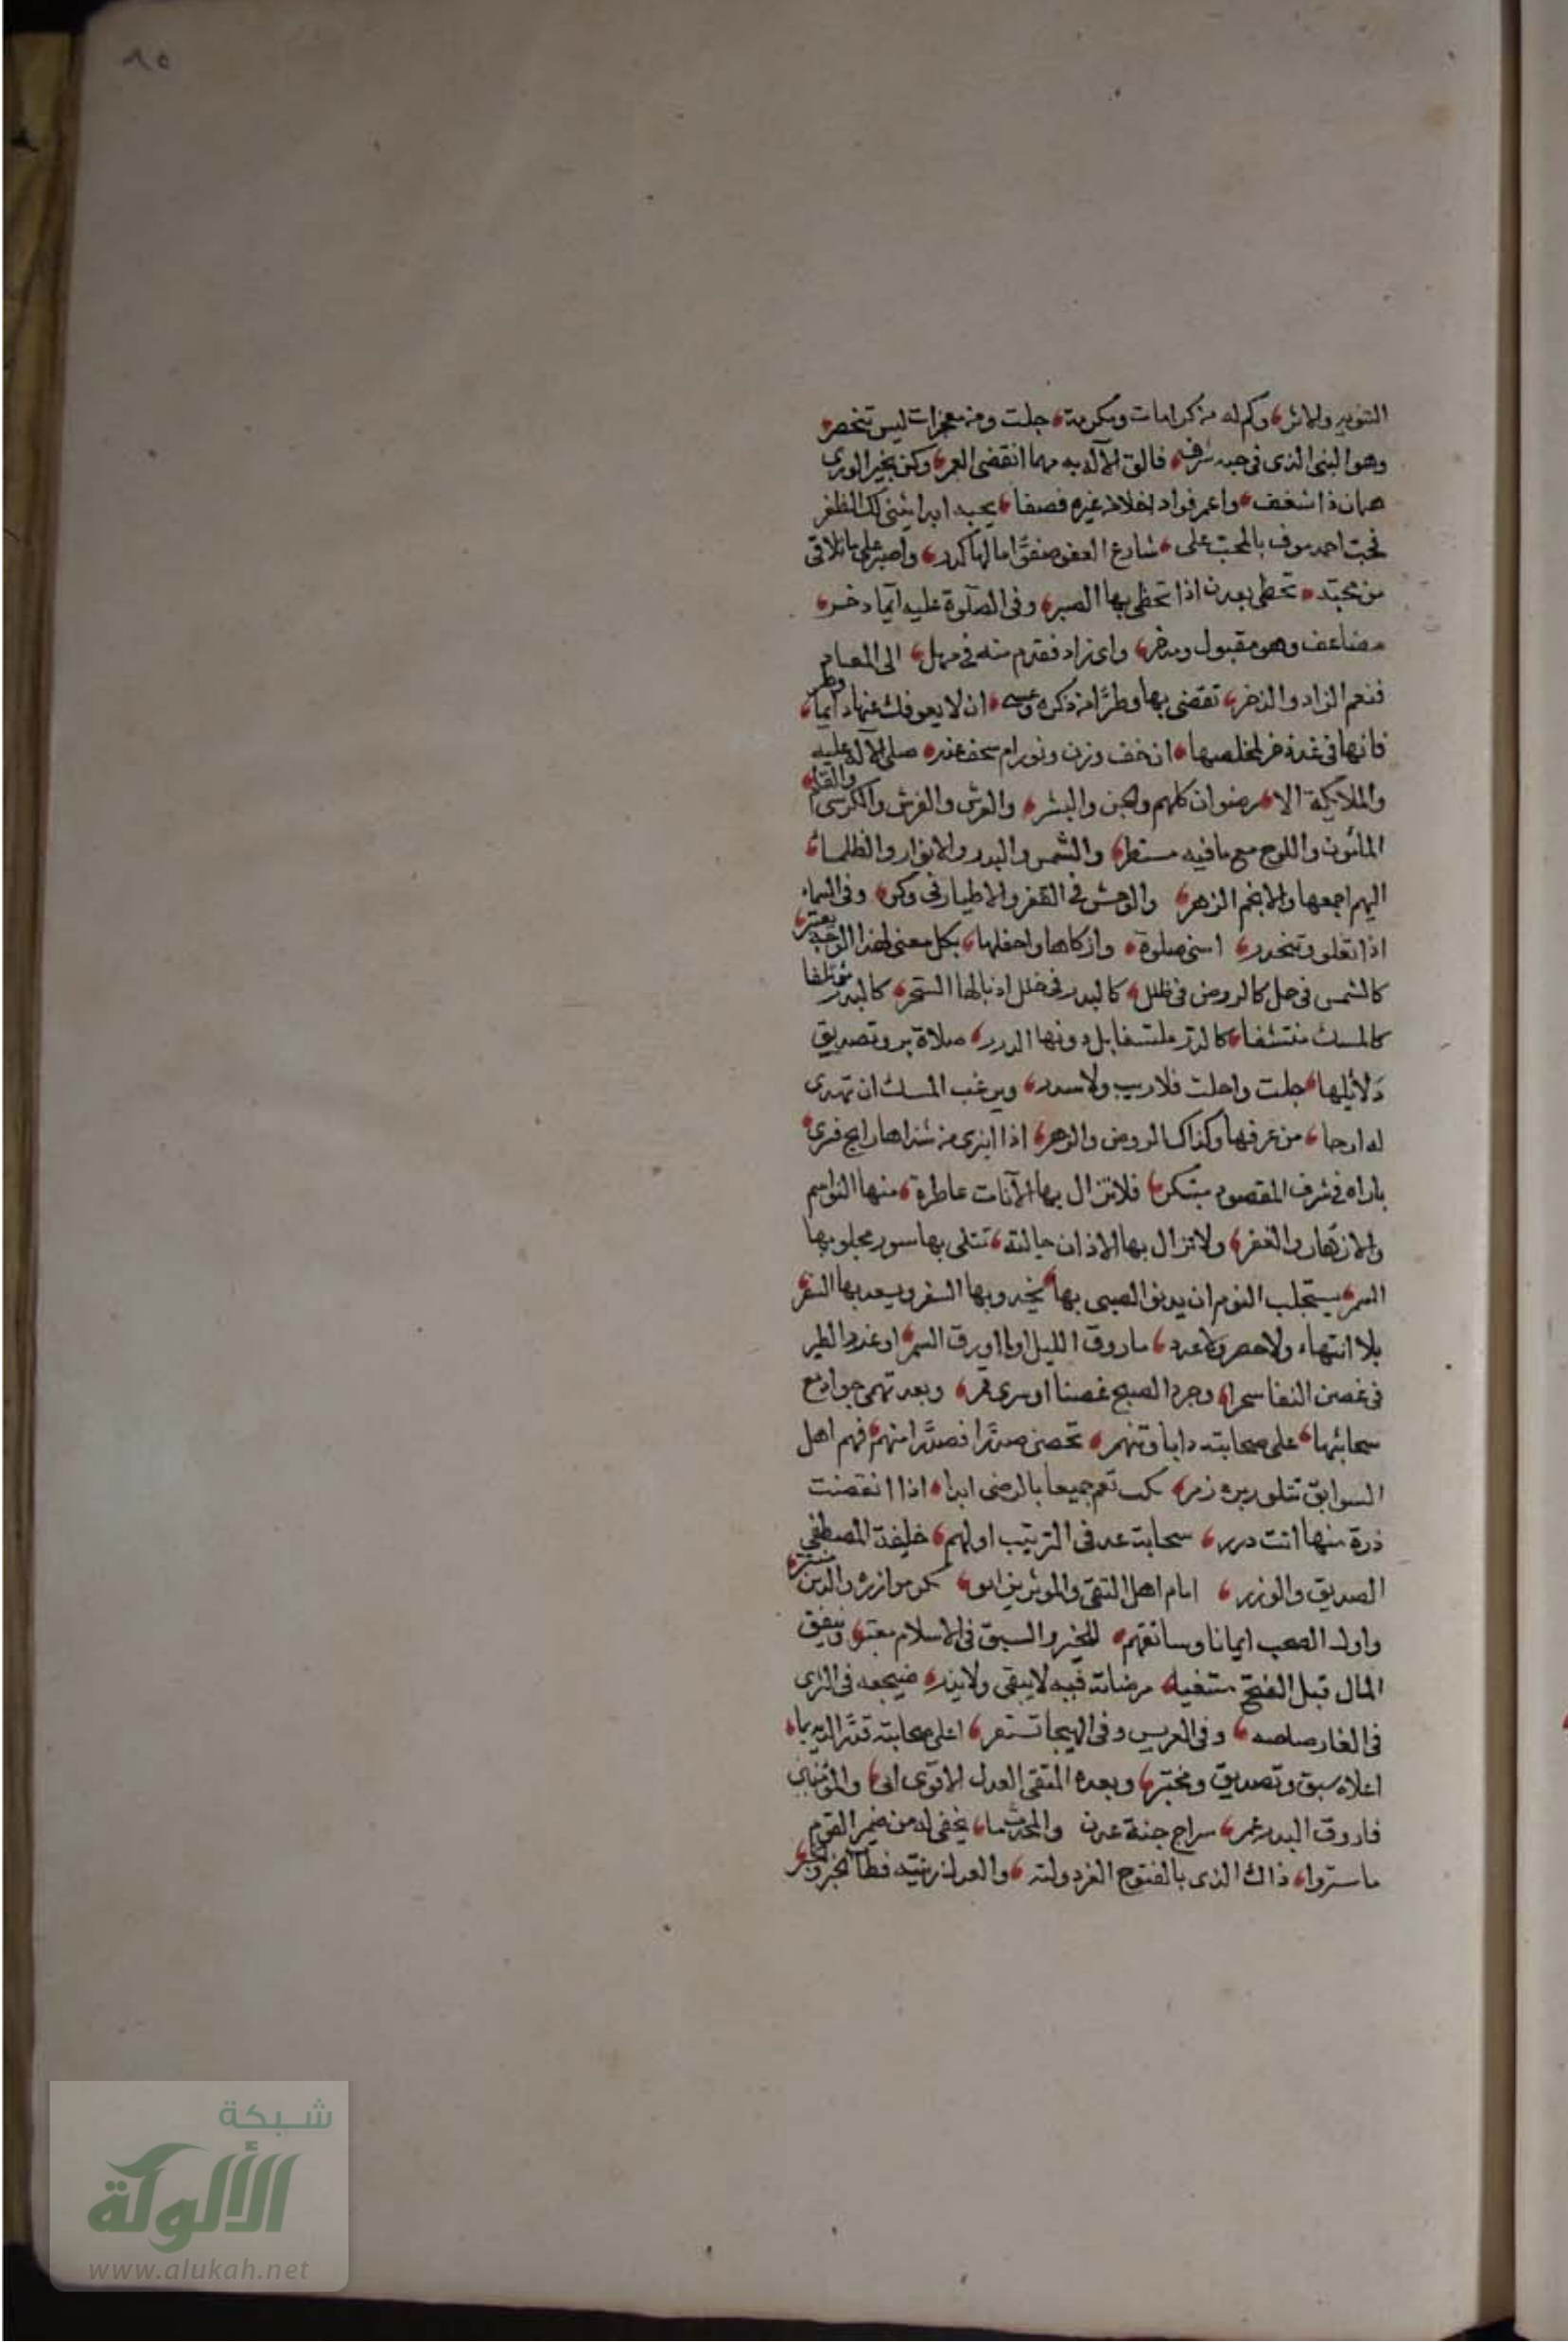 ٨٥
التنوير والاثر، وكم له من كرامات ومكرمة، جلت ومن معجزات ليس تنحصر
وهو النبى الذى فى حبه شرف، فالق الاله به مهما انقضى العمر، وكن بخير الورى
هيمان ذا شغف، واعمر فواد اخلا من غيره فصفا، بحبه ابدا يثنى لك الظفر
فحب احمد موف بالمحب على، شارع العفو صفوا ما لها كدر، واصبر على ما تلاقى
من محبته، تحظى بعدن اذا تحظى بها الصبر، وفى الصلوة عليه ايما دخر،
مضاعف وهو مقبول ومدخر، واى زاد فقدم منه فى مهل، الى المعاد
فنعم الزاد والذخر، تقضى بها وطرا من ذكره وعسى، ان لا يعوقك عنها دايما، وطر
فانها فى غد ذخر لمخلصها، ان خف وزن ونور ام سحف عند، صلى الاله عليه
والملايكة الا، رضوان كلهم والجن والبشر، والعرش والفرش والكرسى والقلم،
المأمون واللوح مع ما فيه مستطر، والشمس والبدر والانوار والظلما،
اليهم اجمعها والانجم الزهر، والوحش فى القفر والاطيار فى وكر، وفى السماء
اذا تعلو وتنحدر، اسنى صلوة، وازكاها واحفلها، بكل معنى لهذا الوجه يعتبر،
كالشمس فى حل كالروض فى ظلل، كالبدر فى خلل اذ نالها السحر، كالبدر مؤتلفا
كالمسك منتشفا، كالدر ملتسفا بل دونها الدرر، صلاة بر وتصديق
دلائلها، جلت واحلت فلا ريب ولا سدر، ويرغب المسك ان تهدى
له ارجا، من عرفها وكذاك الروض والزهر، اذا انبرى من شذاها رايج فرى،
باراه فى شرف المقصود مبتكر، فلا تزال بها الآنات عاطرة، منها النواسم
والازهار والغفر، ولا تزال بها الاذان حالية، تتلى بها سور مجلو بها
السمر، يستجلب النوم ان يدنو الصبى بها، يخدو بها السفر ويسعد بها السفر،
بلا انتهاء ولا حصر ولا عدد، ما روق الليل او ما اورق السمر، او غرد الطير
فى غصن النقا سحرا، وجرد الصبح غصنا او سرى قمر، وبعد تهمى جوادمع
سحائبها، على صحابته دابا وتنهمر، تحصى صدرا فصدرا منهم، فهم اهل
السوابق تتلو ربره زمر، كب تعم جميعا بالرضى ابدا، اذا انقضت
ذرة منها اتت درر، سحابة عد فى الترتيب اولهم، خليفة المصطفى
الصديق والوزر، امام اهل التقى والموثرين ابو، بكر موازره والدين منتشر،
واول الصحب ايمانا وسابقهم، للخير والسبق فى الاسلام معتبر، ومنفق
المال قبل الفتح مبتغيه، مرضاته فيه لا يبقى ولا يذر، ضجيعه فى الثرى
فى الغار صاحبه، وفى العريس وفى الهيجا تستعر، اعلى صحابته قدرا لديه بما،
اعلاه سبق وتصديق ومختبر، وبعده المتقى العدل الاقوى ابى، والمؤمنين
فاروق البدر عمر، سراج جنة عدن والمحدث ما، يخفى له من ضمير القوم
ما ستروا، ذاك الذى بالفتوح الغر دولته، والعدل زينته فطاب الخبر والخبر،
شبكة
الألوكة
www.alukah.net